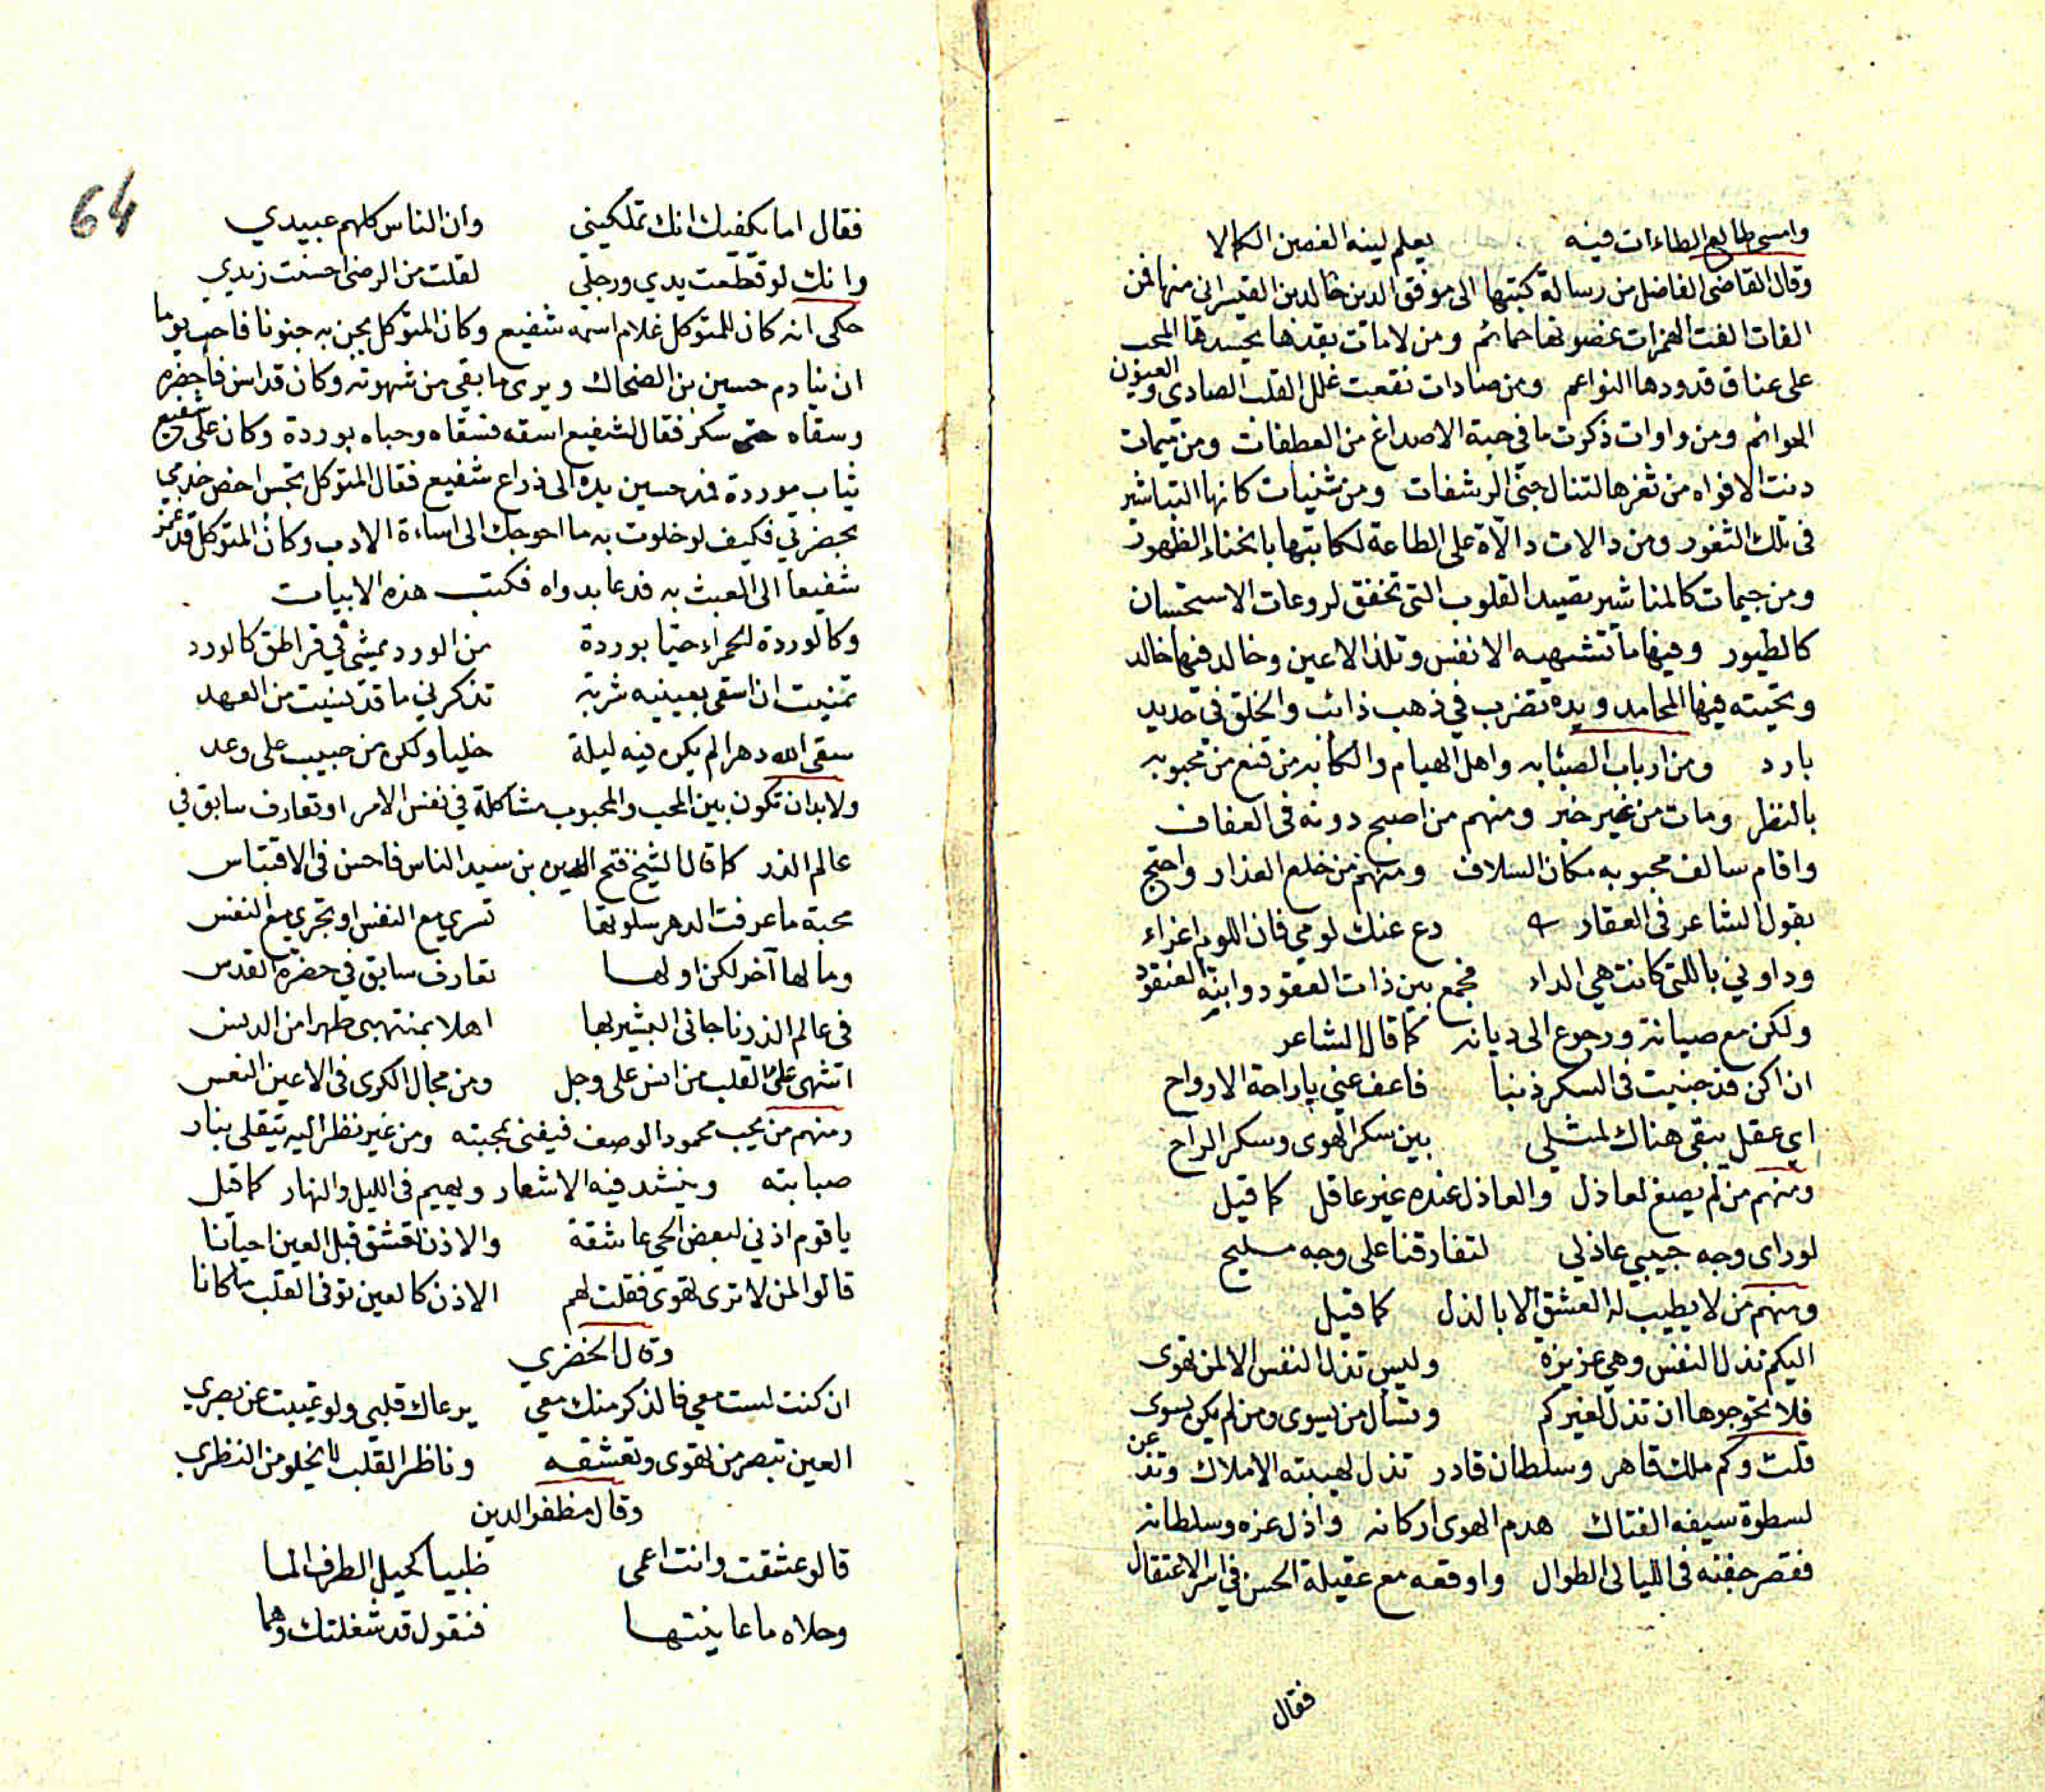 وامسى طالع الطاءات فيه يعلم لينه الغصن الكمالا
وقال القاضى الفاضل من رسالة كتبها الى موفق الدين خالد بن القيسراني منها فمن
الفات الفت الهمزات غصونها حمائم ومن لامات بعدها يحسدها المحب
على عناق قدودها النواعم ومن صادات نقعت غلل القلب الصادى والعيون
الحوائم ومن واوات ذكرت ما في جبة الاصداغ من العطفات ومن ميمات
دنت الافواه من ثغرها لتنال جنى الرشفات ومن سينات كانها التباشير
فى تلك الثغور ومن دالات دالة على الطاعة لكاتبها بانحناء الظهور
ومن جيمات كالمناشير تصيد القلوب التى تخفق لروعات الاستحسان
كالطيور وفيها ما تشتهيه الانفس وتلذ الاعين وخالد فيها خالد
وتحيته فيها المحامد ويده تضرب في ذهب ذائب والخلق فى حديد
بارد ومن ارباب الصبابه واهل الهيام والكابه من قنع من محبوبه
بالنظر ومات من غير خبر ومنهم من اصبح دونه فى العفاف
واقام سالف محبوبه مكان السلاف ومنهم من خلع العذار واحتج
بقول الشاعر فى العقار دع عنك لومي فان اللوم اغراء
وداوني باللتى كانت هي الداء فجمع بين ذات العقود وابنة العنقود
ولكن مع صيانه ورجوع الى ديانه كما قال الشاعر
ان اكن قد جنيت فى السكر ذنبا فاعف عني ياراحة الارواح
اي عقل يبقى هناك لمثلي بين سكر الهوى وسكر الراح
ومنهم من لم يصغ لعاذل والعاذل عنده غير عاقل كما قيل
لو راى وجه حبيبي عاذلي لتفارقنا على وجه مليح
ومنهم من لا يطيب له العشق الا بالذل كما قيل
اليكم تذل النفس وهي عزيزة وليس تذل النفس الا لمن تهوى
فلا تحوجوها ان تذل لغيركم وتسأل من يسوى ومن لم يكن يسوى
قلت وكم ملك قاهر وسلطان قادر تذل لهيبته الاملاك وتذعن
لسطوة سيفه الفتاك هدم الهوى اركانه واذل عزه وسلطانه
فقصر جفنه فى الليالى الطوال واوقعه مع عقيلة الحسن في اسر الاعتقال
فقال
64
فقال اما يكفيك انك تملكيني وان الناس كلهم عبيدي
وانك لو قطعت يدي ورجلي لقلت من الرضى احسنت زيدي
حكى انه كان للمتوكل غلام اسمه شفيع وكان المتوكل يجن به جنونا فاحب يوما
ان ينادم حسين بن الضحاك ويرى ما بقي من شهوته وكان قد اسن فأحضره
وسقاه حتى سكر فقال لشفيع اسقه فسقاه وحياه بوردة وكان على شفيع
ثياب موردة فمد حسين يده الى ذراع شفيع فقال المتوكل تجس اخص خدمي
بحضرتي فكيف لو خلوت به ما احوجك الى اساءة الادب وكان المتوكل قد غمز
شفيعا الى العبث به فدعا بدواه فكتب هذه الابيات
وكالوردة الحمراء حيّا بوردة من الورد يمشي في قراطق كالورد
تمنيت ان اسقى بعينيه شربة تذكرني ما قد نسيت من العهد
سقى الله دهرا لم يكن فيه ليلة خليا ولكن من حبيب على وعد
ولابد ان تكون بين المحب والمحبوب مشاكلة في نفس الامر او تعارف سابق في
عالم الذر كما قال الشيخ فتح الدين بن سيد الناس فاحسن فى الاقتباس
محبة ما عرفت الدهر سلوتها تسري مع النفس او تجري مع النفس
وما لها آخر لكن اولها تعارف سابق في حضرة القدس
فى عالم الذر ناجانى البشير بها اهلا بمنتهى طهرا من الدنس
اشهى على القلب من انس على وجل ومن مجال الكرى فى الاعين النعس
ومنهم من يحب محمود الوصف فيفنى بمحبته ومن غير نظر اليه يتقلى بنار
صبابته وينشد فيه الاشعار ويهيم فى الليل والنهار كما قيل
ياقوم اذني لبعض الحي عاشقة والاذن تعشق قبل العين احيانا
قالوا لمن لا ترى تهوى فقلت لهم الاذن كالعين توفى القلب ما كانا
وقال الخضري
ان كنت لست معي فالذكر منك معي يرعاك قلبي ولو غيبت عن بصري
العين تبصر من تهوى وتعشقه وناظر القلب لا يخلو من النظري
وقال مظفر الدين
قالو عشقت وانت اعمى ظبيا كحيل الطرف المى
وحلاه ما عاينتها فنقول قد شغلتك وهما